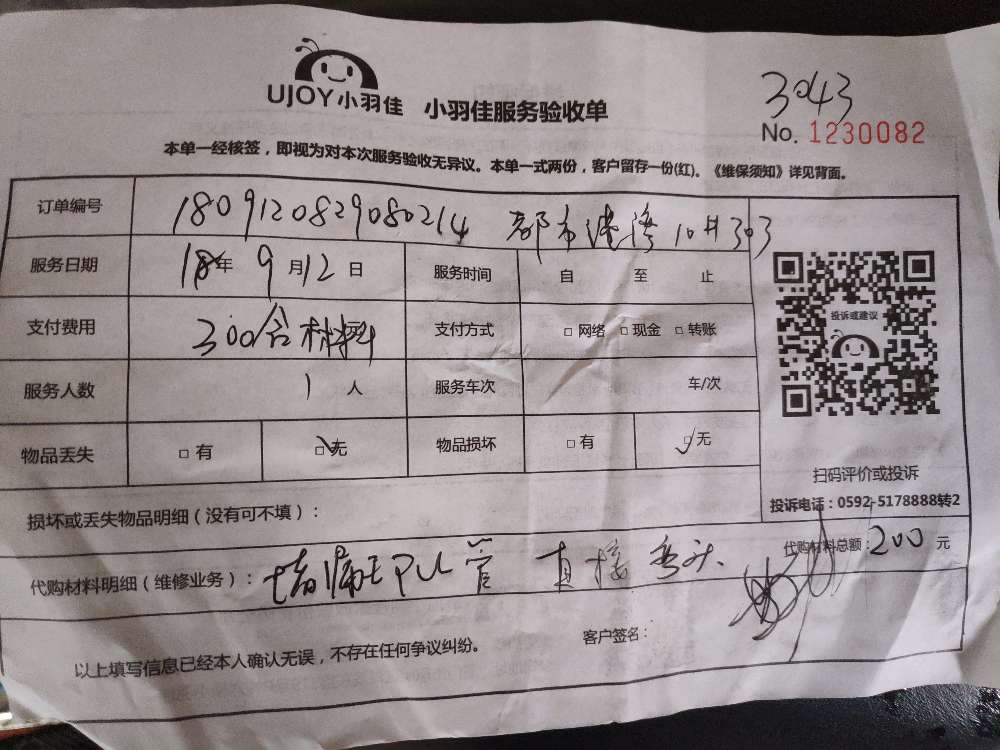 UJOY小羽佳 小羽佳服务验收单
3043
No. 1230082
本单一经核签，即视为对本次服务验收无异议。本单一式两份，客户留存一份(红)。《维保须知》详见背面。
订单编号 1809120829080214 都市港湾 10# 303
服务日期 18年 9月12日 服务时间 自 至 止
支付费用 300含材料 支付方式 □ 网络 □ 现金 □ 转账
服务人数 1 人 服务车次 车/次
物品丢失 □ 有 □无 物品损坏 □ 有 □无
投诉或建议
扫码评价或投诉
投诉电话：0592-5178888转2
损坏或丢失物品明细（没有可不填）：
代购材料明细（维修业务）：堵漏王 PU管 直接 弯头 代购材料总额：200 元
以上填写信息已经本人确认无误，不存在任何争议纠纷。 客户签名：